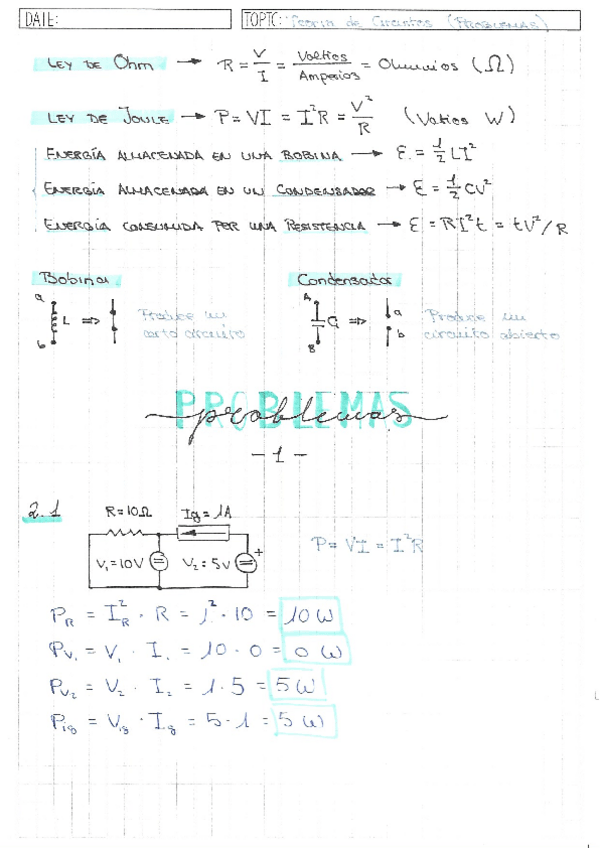 DATE: TOPIC: Teoría de Circuitos (PROBLEMAS)
LEY DE Ohm → R = V/I = Voltios/Amperios = Ohmnios (Ω)
LEY DE JOULE → P = VI = I²R = V²/R (Vatios W)
ENERGÍA ALMACENADA EN UNA BOBINA → E = 1/2 LI²
ENERGÍA ALMACENADA EN UN CONDENSADOR → E = 1/2 CV²
ENERGÍA CONSUMIDA POR UNA RESISTENCIA → E = RI²t = tV²/R
Bobina Condensador
a L ⇒ b Produce un corto circuito
A C ⇒ a b B Produce un circuito abierto
PROBLEMAS
problemas
- 1 -
2.1 R = 10Ω Ig = 1A
V₁ = 10V V₂ = 5V + P = VI = I²R
P_R = I_R² · R = 1² · 10 = 10 W
P_V₁ = V₁ · I₁ = 10 · 0 = 0 W
P_V₂ = V₂ · I₂ = 1 · 5 = 5 W
P_ig = V_ig · I_g = 5 · 1 = 5 W